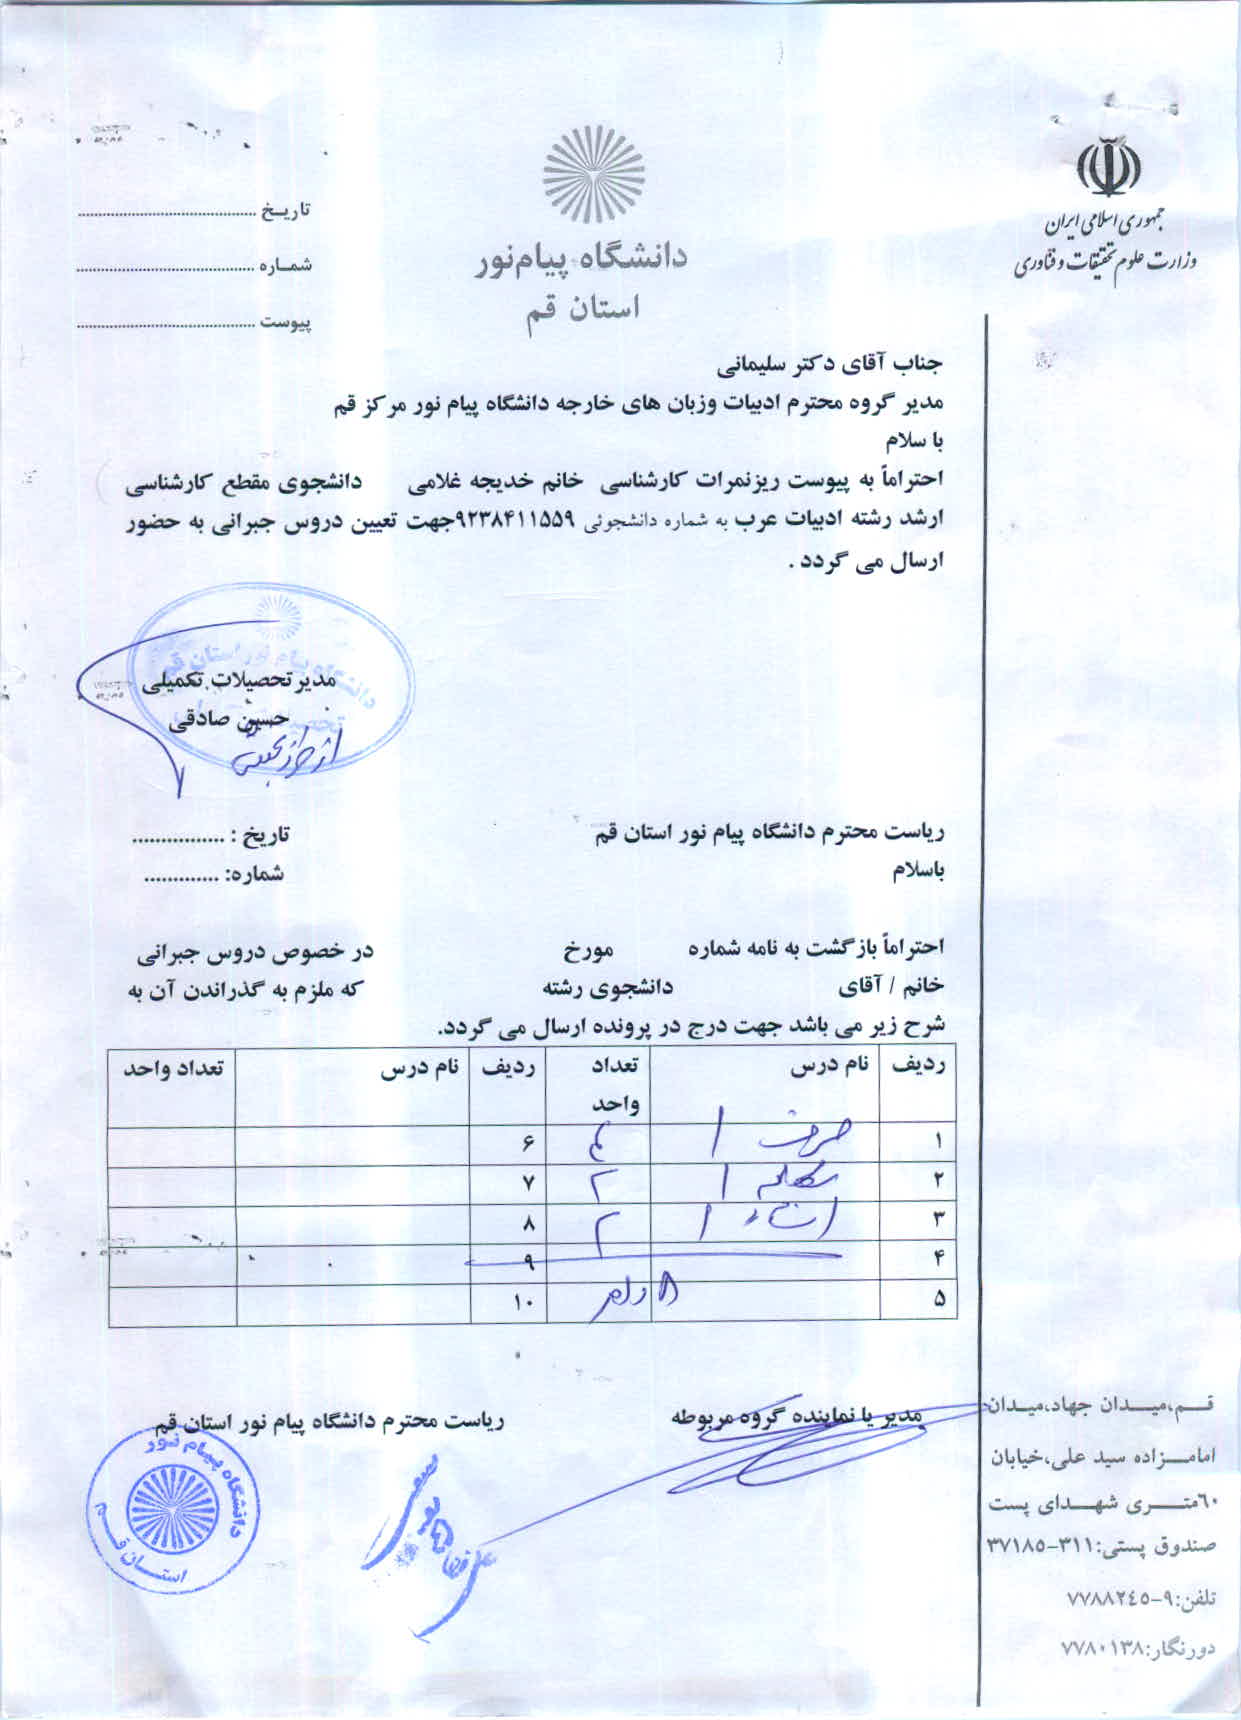 جمهوری اسلامی ایران
وزارت علوم تحقیقات و فناوری
دانشگاه پیام‌نور
استان قم
تاریـخ ............................................
شمـاره ............................................
پیوست ............................................
جناب آقای دکتر سلیمانی
مدیر گروه محترم ادبیات وزبان های خارجه دانشگاه پیام نور مرکز قم
با سلام
احتراماً به پیوست ریزنمرات کارشناسی خانم خدیجه غلامی دانشجوی مقطع کارشناسی
ارشد رشته ادبیات عرب به شماره دانشجوئی ۹۲۳۸۴۱۱۵۵۹جهت تعیین دروس جبرانی به حضور
ارسال می گردد .
دانشگاه پیام نور استان قم
مدیر تحصیلات تکمیلی
حسین صادقی
ریاست محترم دانشگاه پیام نور استان قم
تاریخ : ................
باسلام
شماره: .............
احتراماً بازگشت به نامه شماره مورخ در خصوص دروس جبرانی
خانم / آقای دانشجوی رشته که ملزم به گذراندن آن به
شرح زیر می باشد جهت درج در پرونده ارسال می گردد.
ردیف نام درس تعداد واحد ردیف نام درس تعداد واحد
۱ صرف ۱ ۴ ۶
۲ مکالمه ۱ ۲ ۷
۳ انشاء ۱ ۲ ۸
۴ ۹
۵ ۸ واحد ۱۰
مدیر یا نماینده گروه مربوطه
ریاست محترم دانشگاه پیام نور استان قم
دانشگاه پیام نور
استـان قـم
قـــم،میـــدان جهاد،میـدان
امامـــزاده سید علی،خیابان
٦٠متـــــری شهـــدای پست
صندوق پستی:۳۱۱-۳۷۱۸۵
تلفن:۹-۷۷۸۸۲٤۵
دورنگار:۷۷۸۰۱۳۸